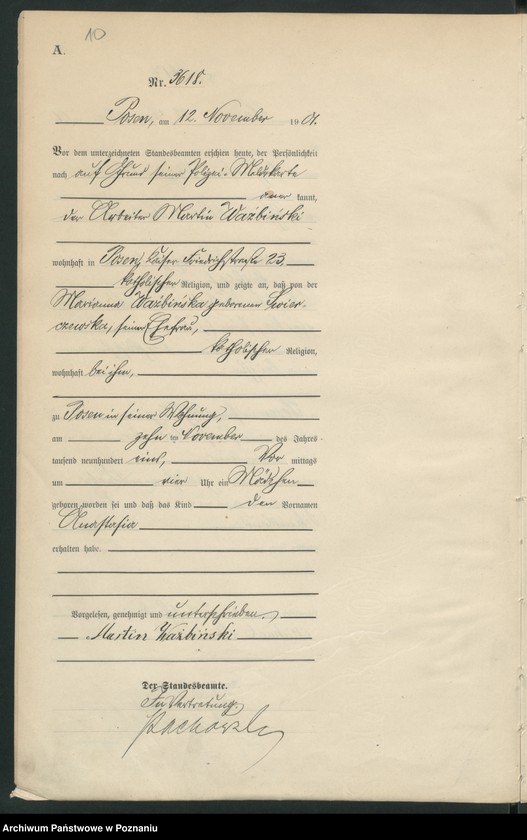 10
A.
Nr. 3618.
Posen, am 12. November 1901.
Vor dem unterzeichneten Standesbeamten erschien heute, der Persönlichkeit
nach auf Grund seiner Polizei-Meldekarte
kannt,
der Arbeiter Martin Waźbiński
wohnhaft in Posen, Kaiser Friedrichstraße 23,
katholischer Religion, und zeigte an, daß von der
Marianna Waźbińska geborenen Swier-
czewska, seiner Ehefrau,
katholischer Religion,
wohnhaft bei ihm,
zu Posen in seiner Wohnung,
am zehn im November des Jahres
tausend neunhundert eins, Vor mittags
um vier Uhr ein Mädchen
geboren worden sei und daß das Kind den Vornamen
Anastasia
erhalten habe.
Vorgelesen, genehmigt und unterschrieben.
Martin Waźbiński
Der Standesbeamte.
In Vertretung.
Archiwum Państwowe w Poznaniu